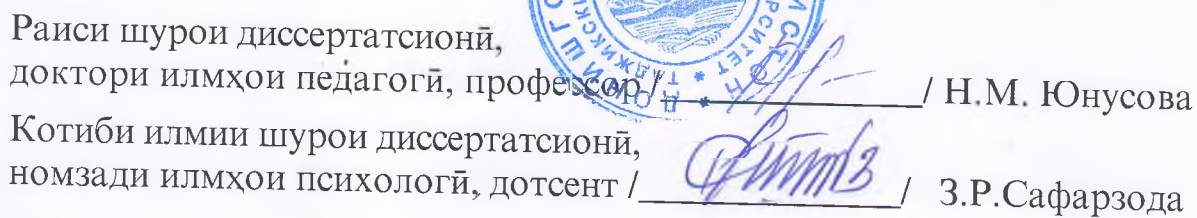 Раиси шурои диссертатсионӣ,
доктори илмҳои педагогӣ, профессор /______________/ Н.М. Юнусова
Котиби илмии шурои диссертатсионӣ,
номзади илмҳои психологӣ, дотсент /______________/ З.Р.Сафарзода